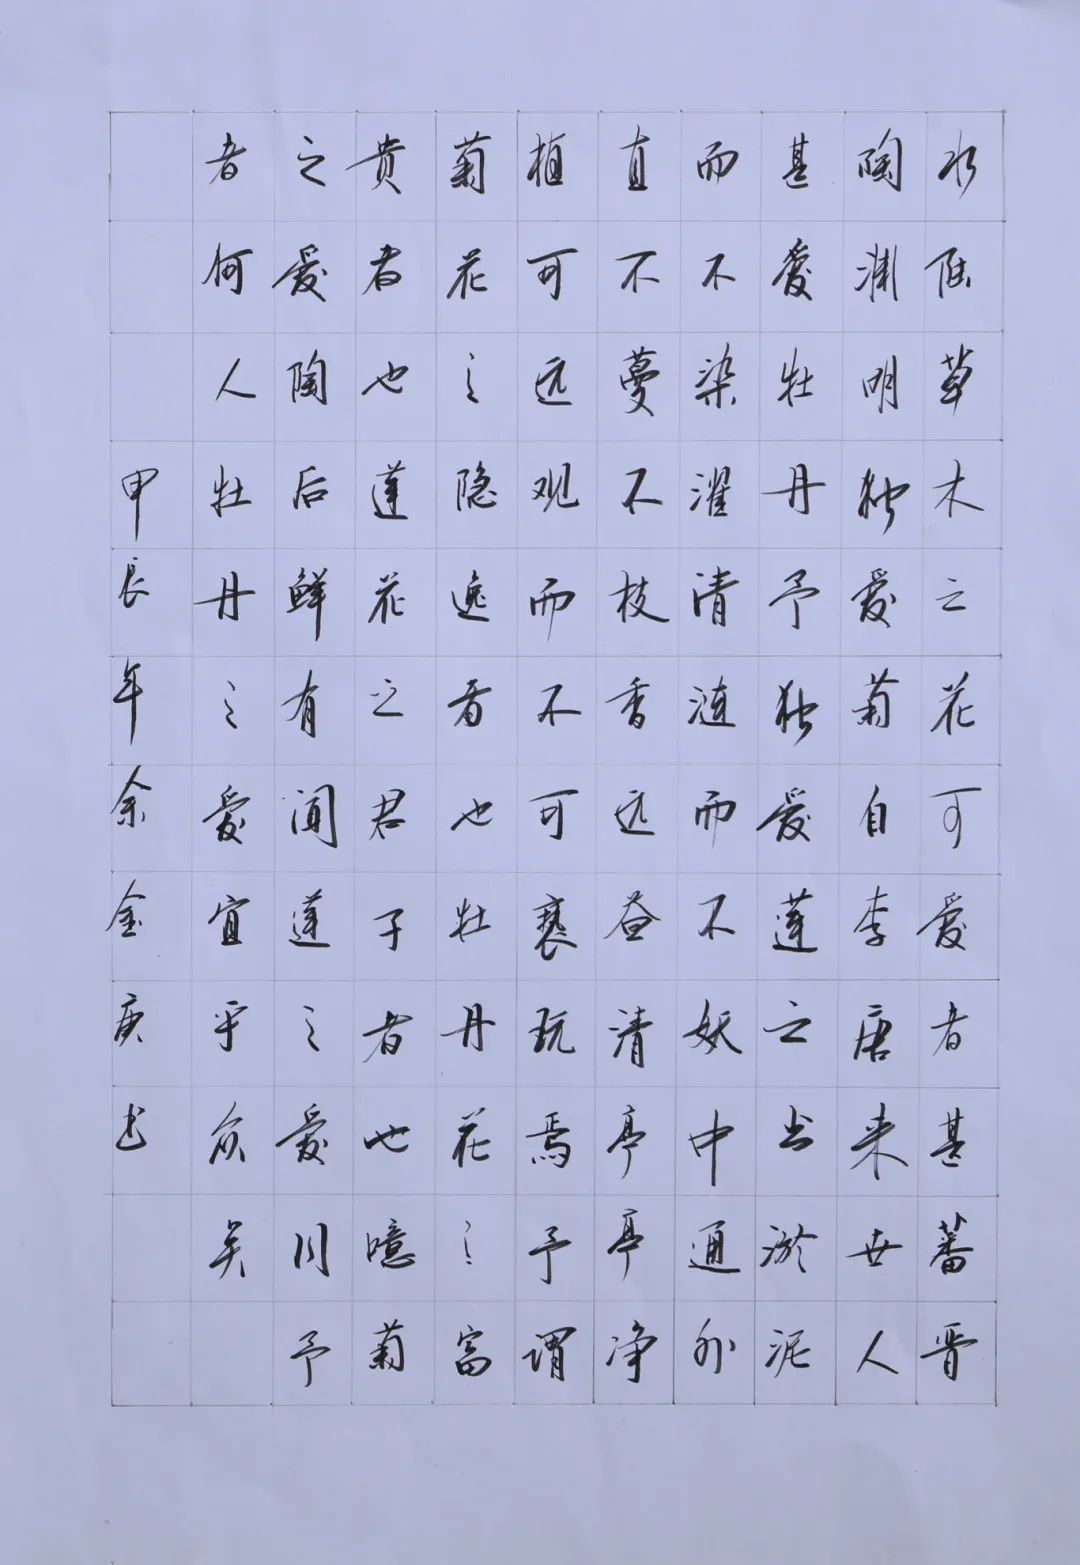 水陆草木之花可爱者甚蕃晋
陶渊明独爱菊自李唐来世人
甚爱牡丹予独爱莲之出淤泥
而不染濯清涟而不妖中通外
直不蔓不枝香远益清亭亭净
植可远观而不可亵玩焉予谓
菊花之隐逸者也牡丹花之富
贵者也莲花之君子者也噫菊
之爱陶后鲜有闻莲之爱同予
者何人牡丹之爱宜乎众矣
甲辰年余金庚书